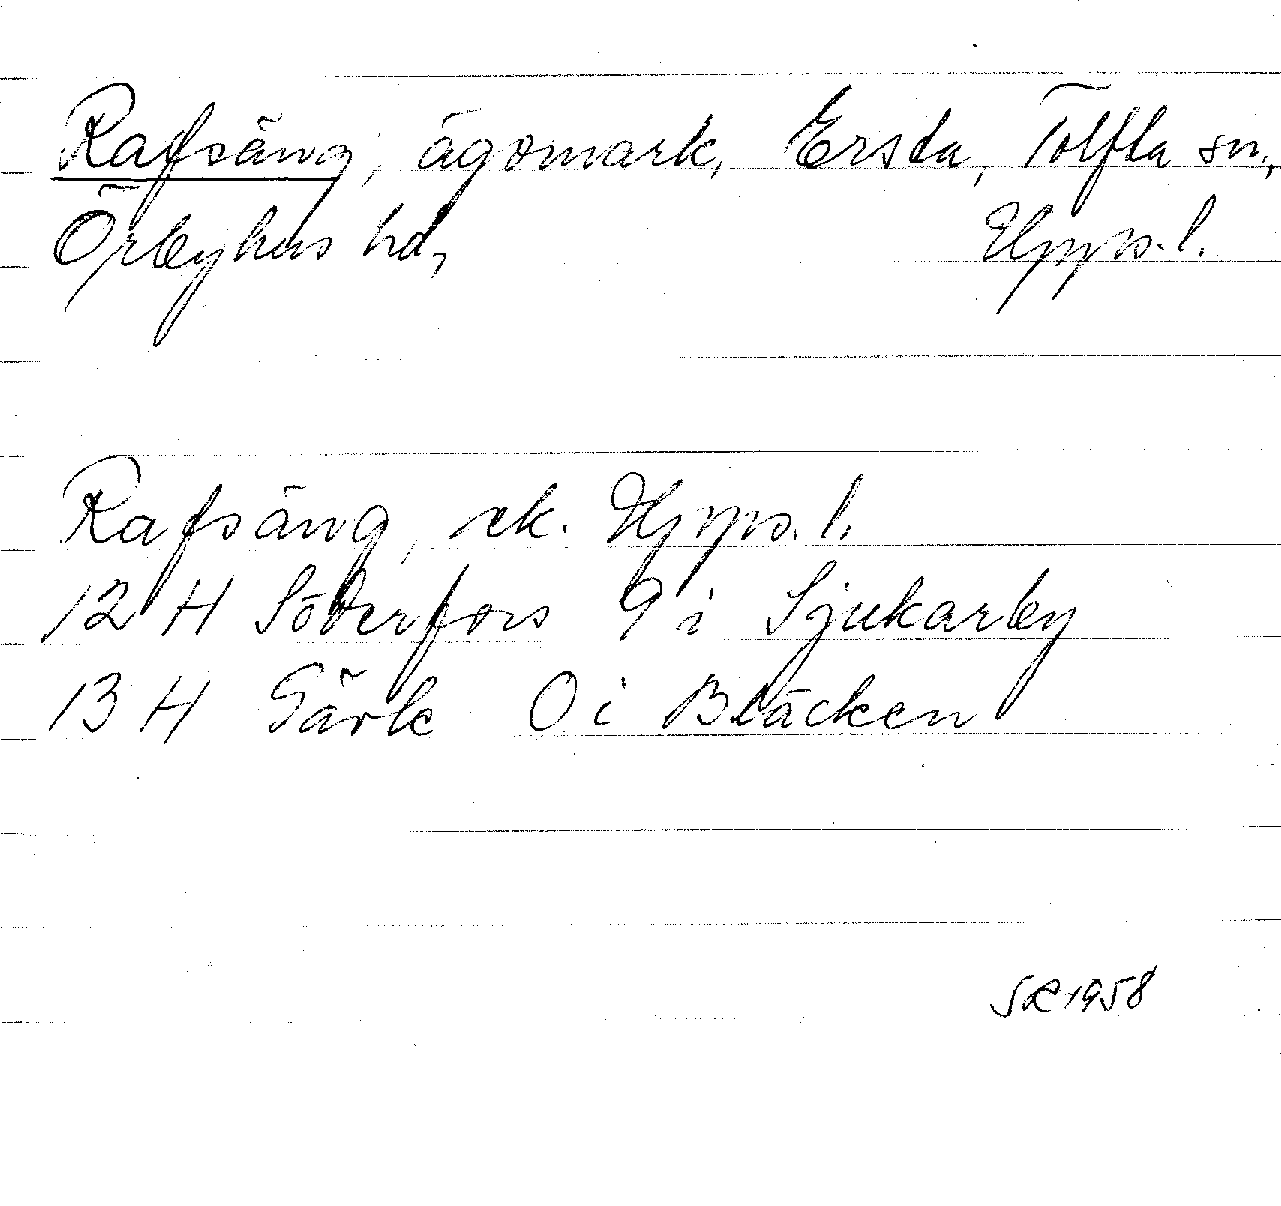 Rafsäng, ägomark, Ersta, Tolfta sn,
Örbyhus hd, Upps. l.
Rafsäng, ek. Upps. l.
12 H Söderfors 9 i Sjukarby
13 H Särk 0 i Bläcken
SR 1958